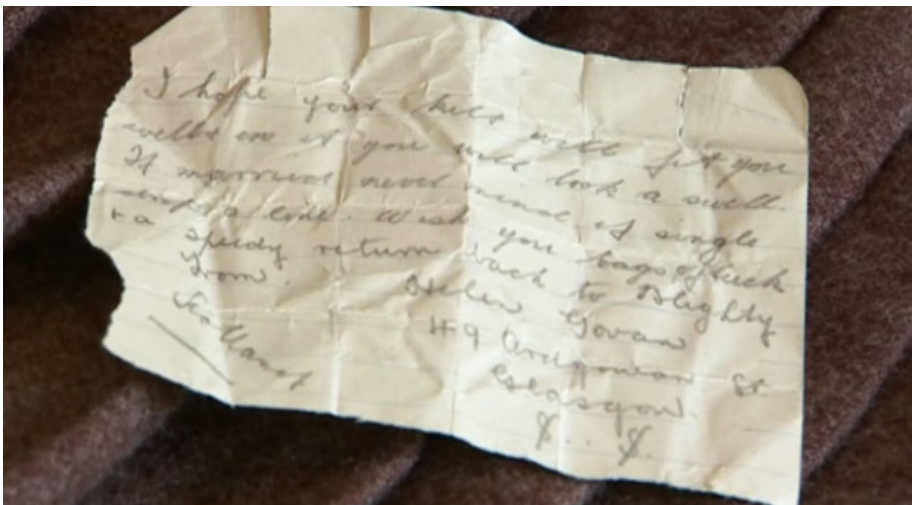 I hope your kilt will fit you
well & on it you will look a swell.
If married never mind if single
drop a line. Wish you bags of luck
+ a speedy return back to Blighty
From. Helen Govan
49 Ardgowan St
Glasgow.